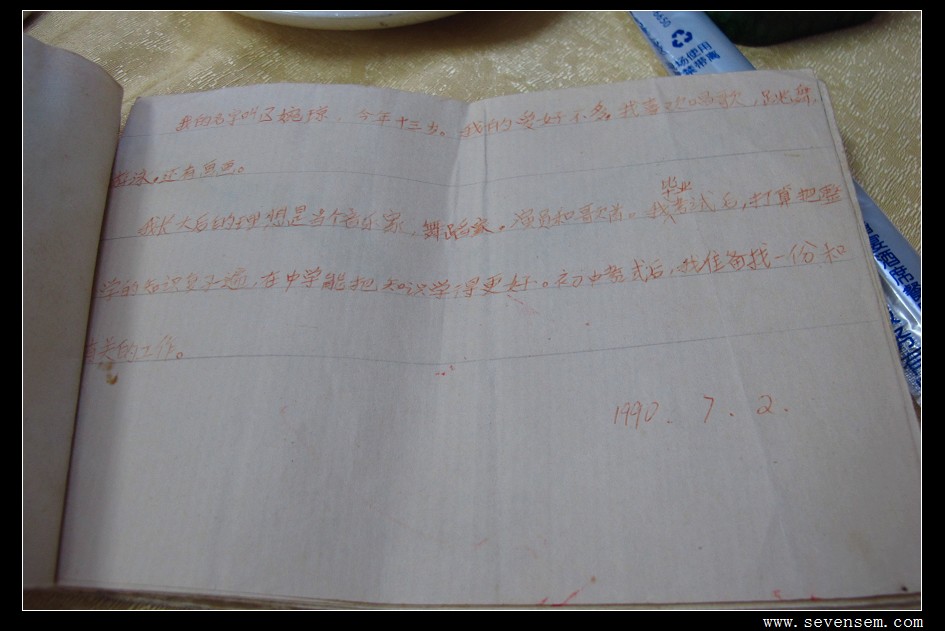 我的名字叫 婉琼，今年十三岁。我的爱好不多，我喜欢唱歌，跳舞，
游泳。还有画画。
我长大后的理想是当个音乐家，舞蹈家。演员和歌者。我毕业考试后，打算把
学的知识复习遍，在中学能把知识学得更好。初中 试后，我准备找一份和
有关的工作。
1990.7.2.
6650
场使用
禁带离
www.sevensem.com